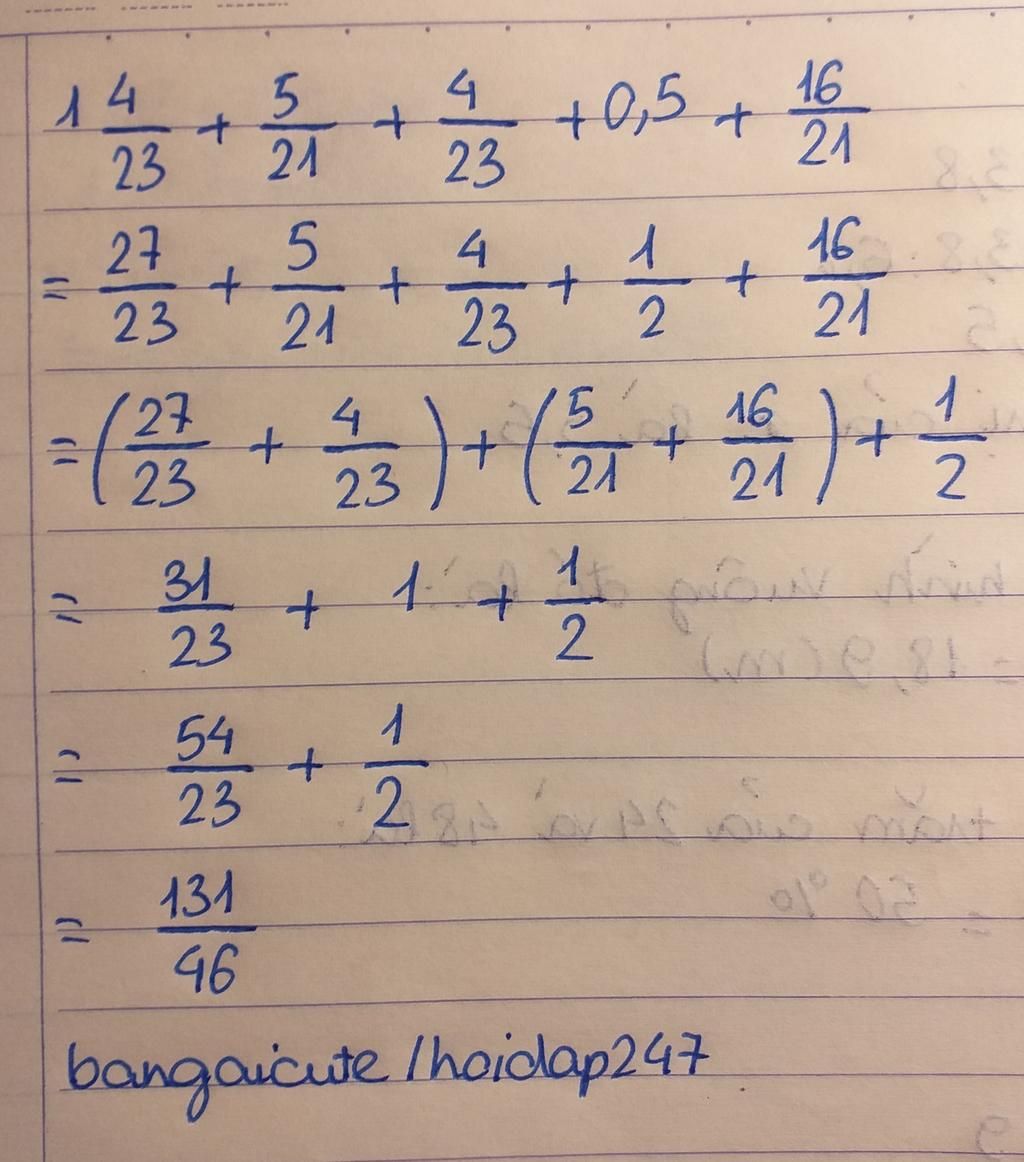 1 4/23 + 5/21 + 4/23 + 0,5 + 16/21
= 27/23 + 5/21 + 4/23 + 1/2 + 16/21
= (27/23 + 4/23) + (5/21 + 16/21) + 1/2
= 31/23 + 1 + 1/2
= 54/23 + 1/2
= 131/46
bangaicute /hoidap247